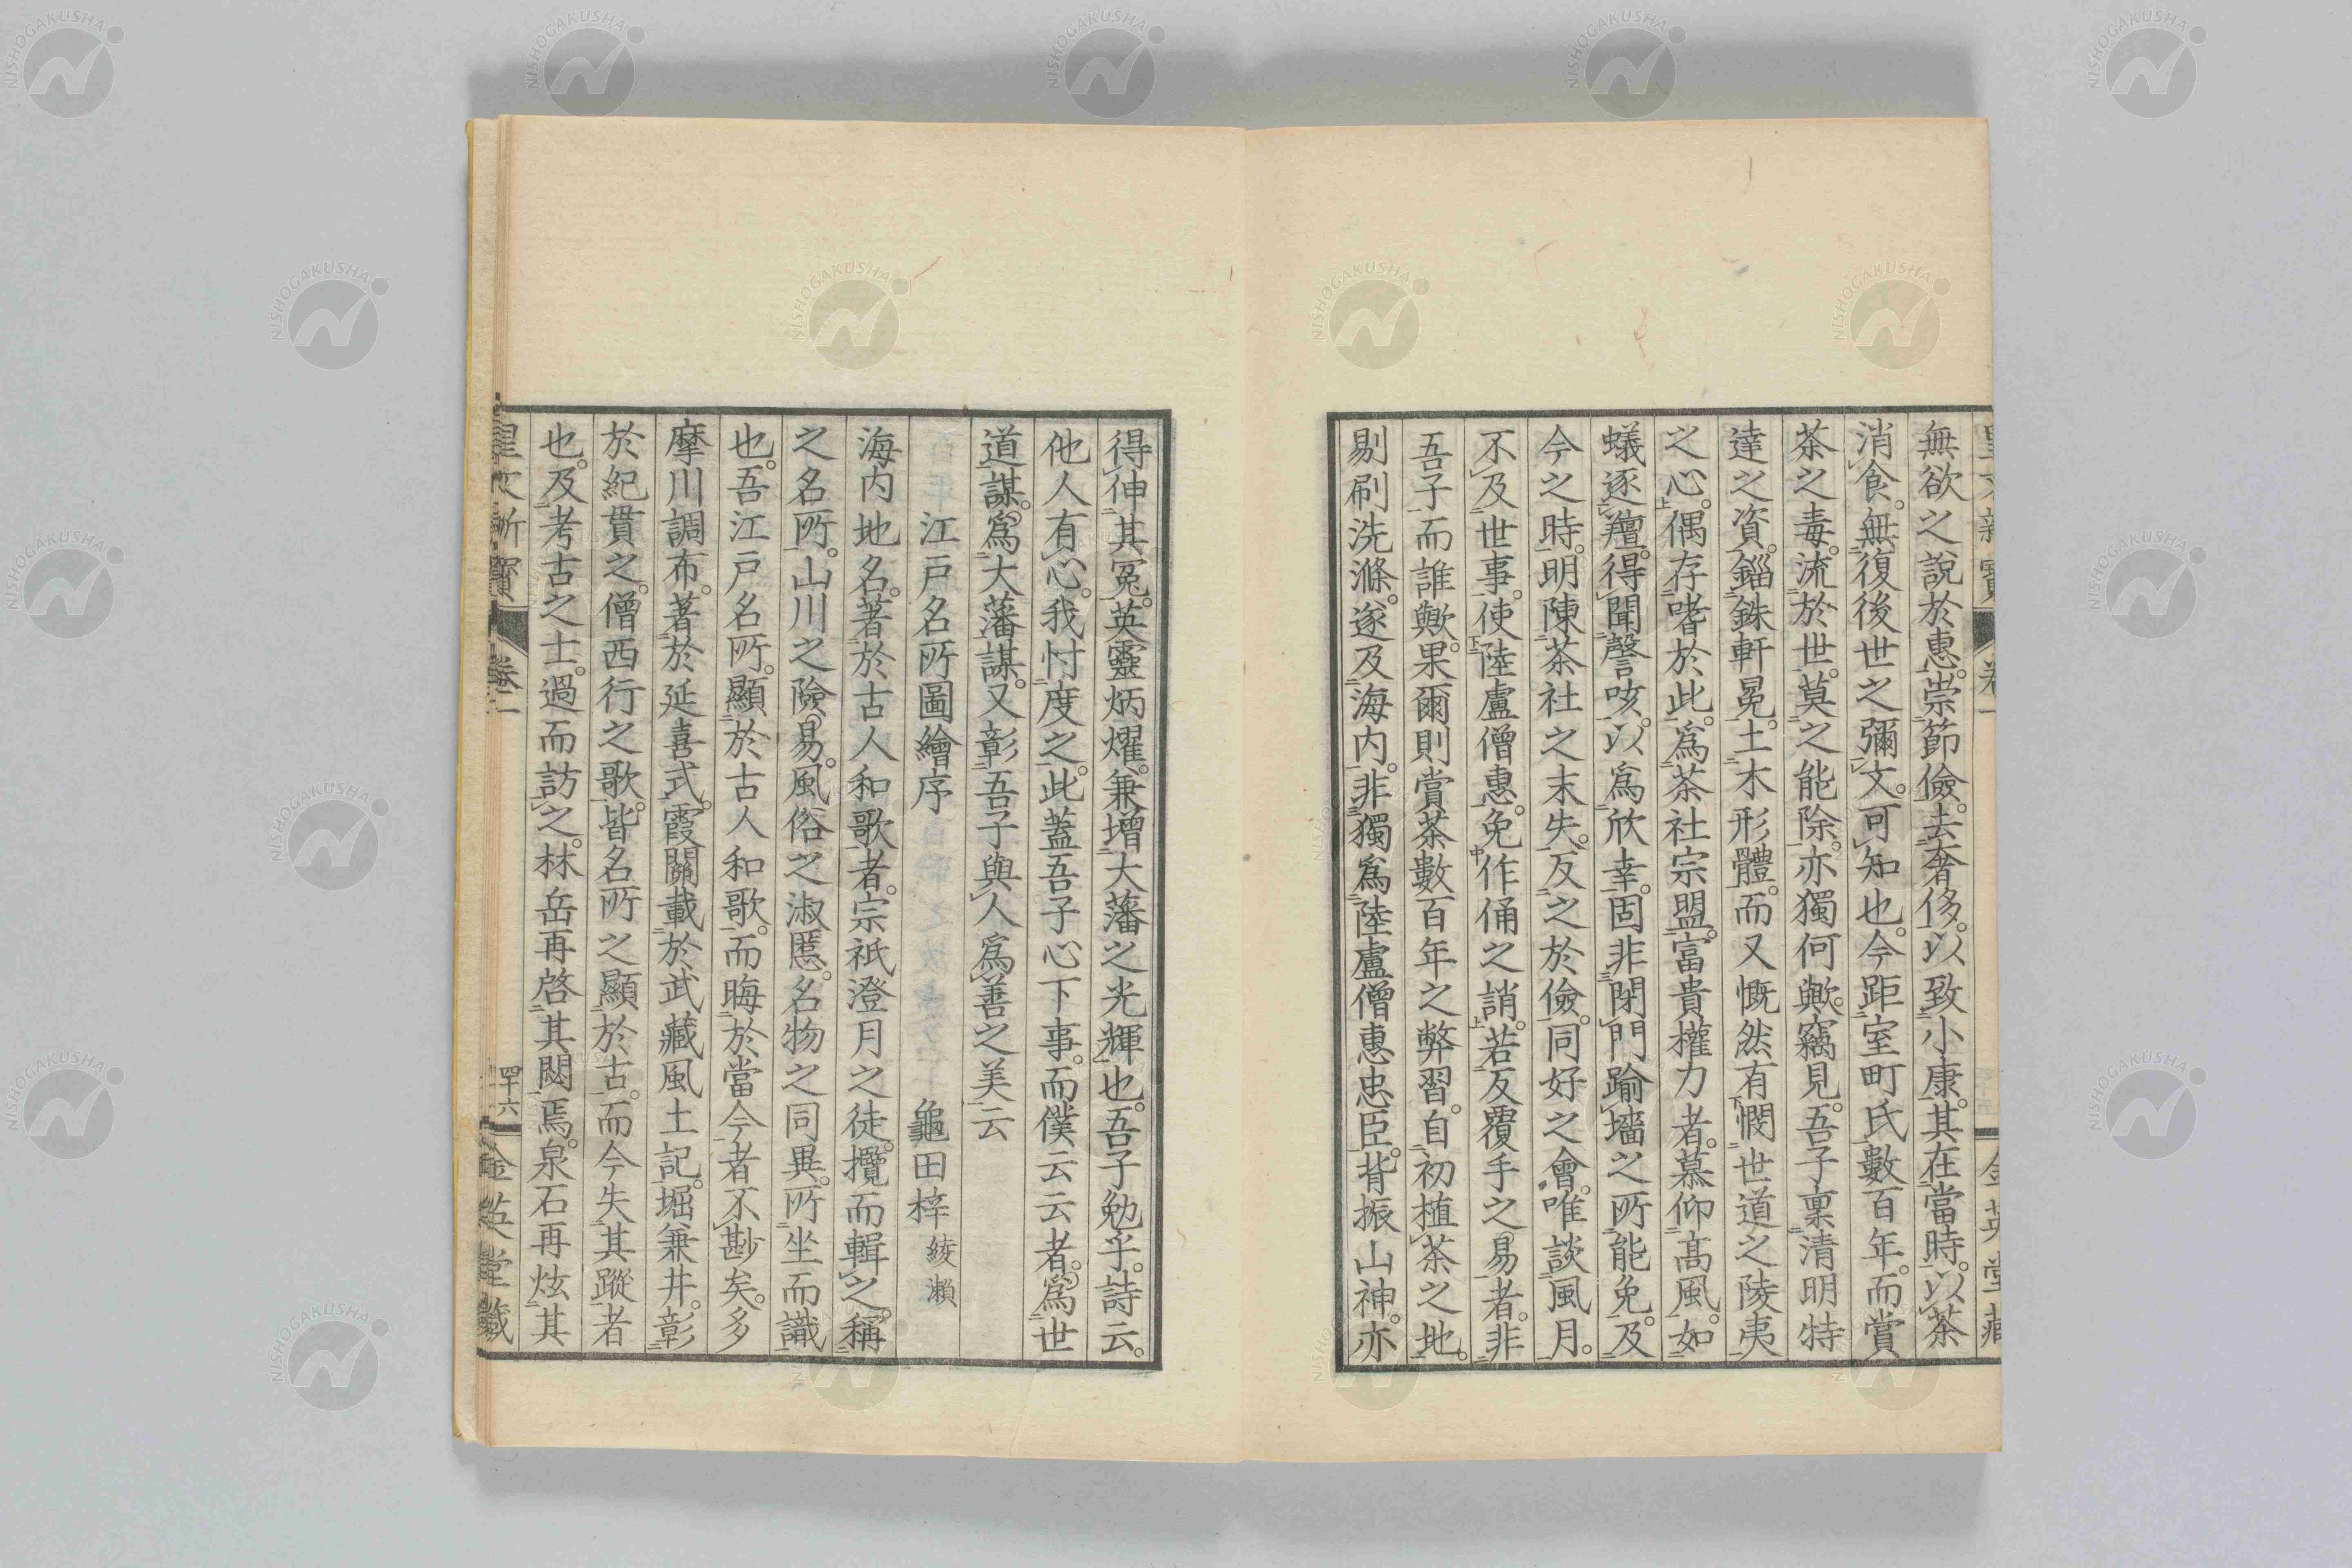 無欲之說於惠。崇節儉。去奢侈。以致小康。其在當時。以茶
消食。無復後世之彌文。可知也。今距室町氏數百年。而賞
茶之毒。流於世。莫之能除。亦獨何歟。竊見。吾子稟清明特
達之資。錙銖軒冕。土木形體。而又慨然有憫世道之陵夷
之心。偶存嗜於此。爲茶社宗盟。富貴權力者。慕仰高風。如
蟻逐羶。得聞謦咳。以爲欣幸。固非閉門踰墻之所能免。及
今之時。明陳茶社之末失。反之於儉。同好之會。唯談風月。
不及世事。使陸盧僧惠。免作俑之誚。若反覆手之易者。非
吾子而誰歟。果爾則賞茶數百年之弊習。自初植茶之地。
剔刷洗滌。遂及海内。非獨爲陸盧僧惠忠臣。背振山神。亦
得伸其冤。英靈炳燿。兼增大藩之光輝也。吾子勉乎。詩云。
他人有心。我忖度之。此蓋吾子心下事。而僕云云者。爲世
道謀。爲大藩謀。又彰吾子與人爲善之美云
江戸名所圖繪序 龜田梓 綾瀬
海内地名。著於古人和歌者。宗祇澄月之徒。攬而輯之。稱
之名所。山川之險易。風俗之淑慝。名物之同異。所坐而識
也。吾江戸名所。顯於古人和歌。而晦於當今者不尠矣。多
摩川調布。著於延喜式。霞關載於武藏風土記。堀兼井。彰
於紀貫之。僧西行之歌。皆名所之顯於古。而今失其蹤者
也。及考古之士。過而訪之。林岳再啓其閟焉。泉石再炫其
卷二 四十六 金英堂藏
NISHOGAKUSHA